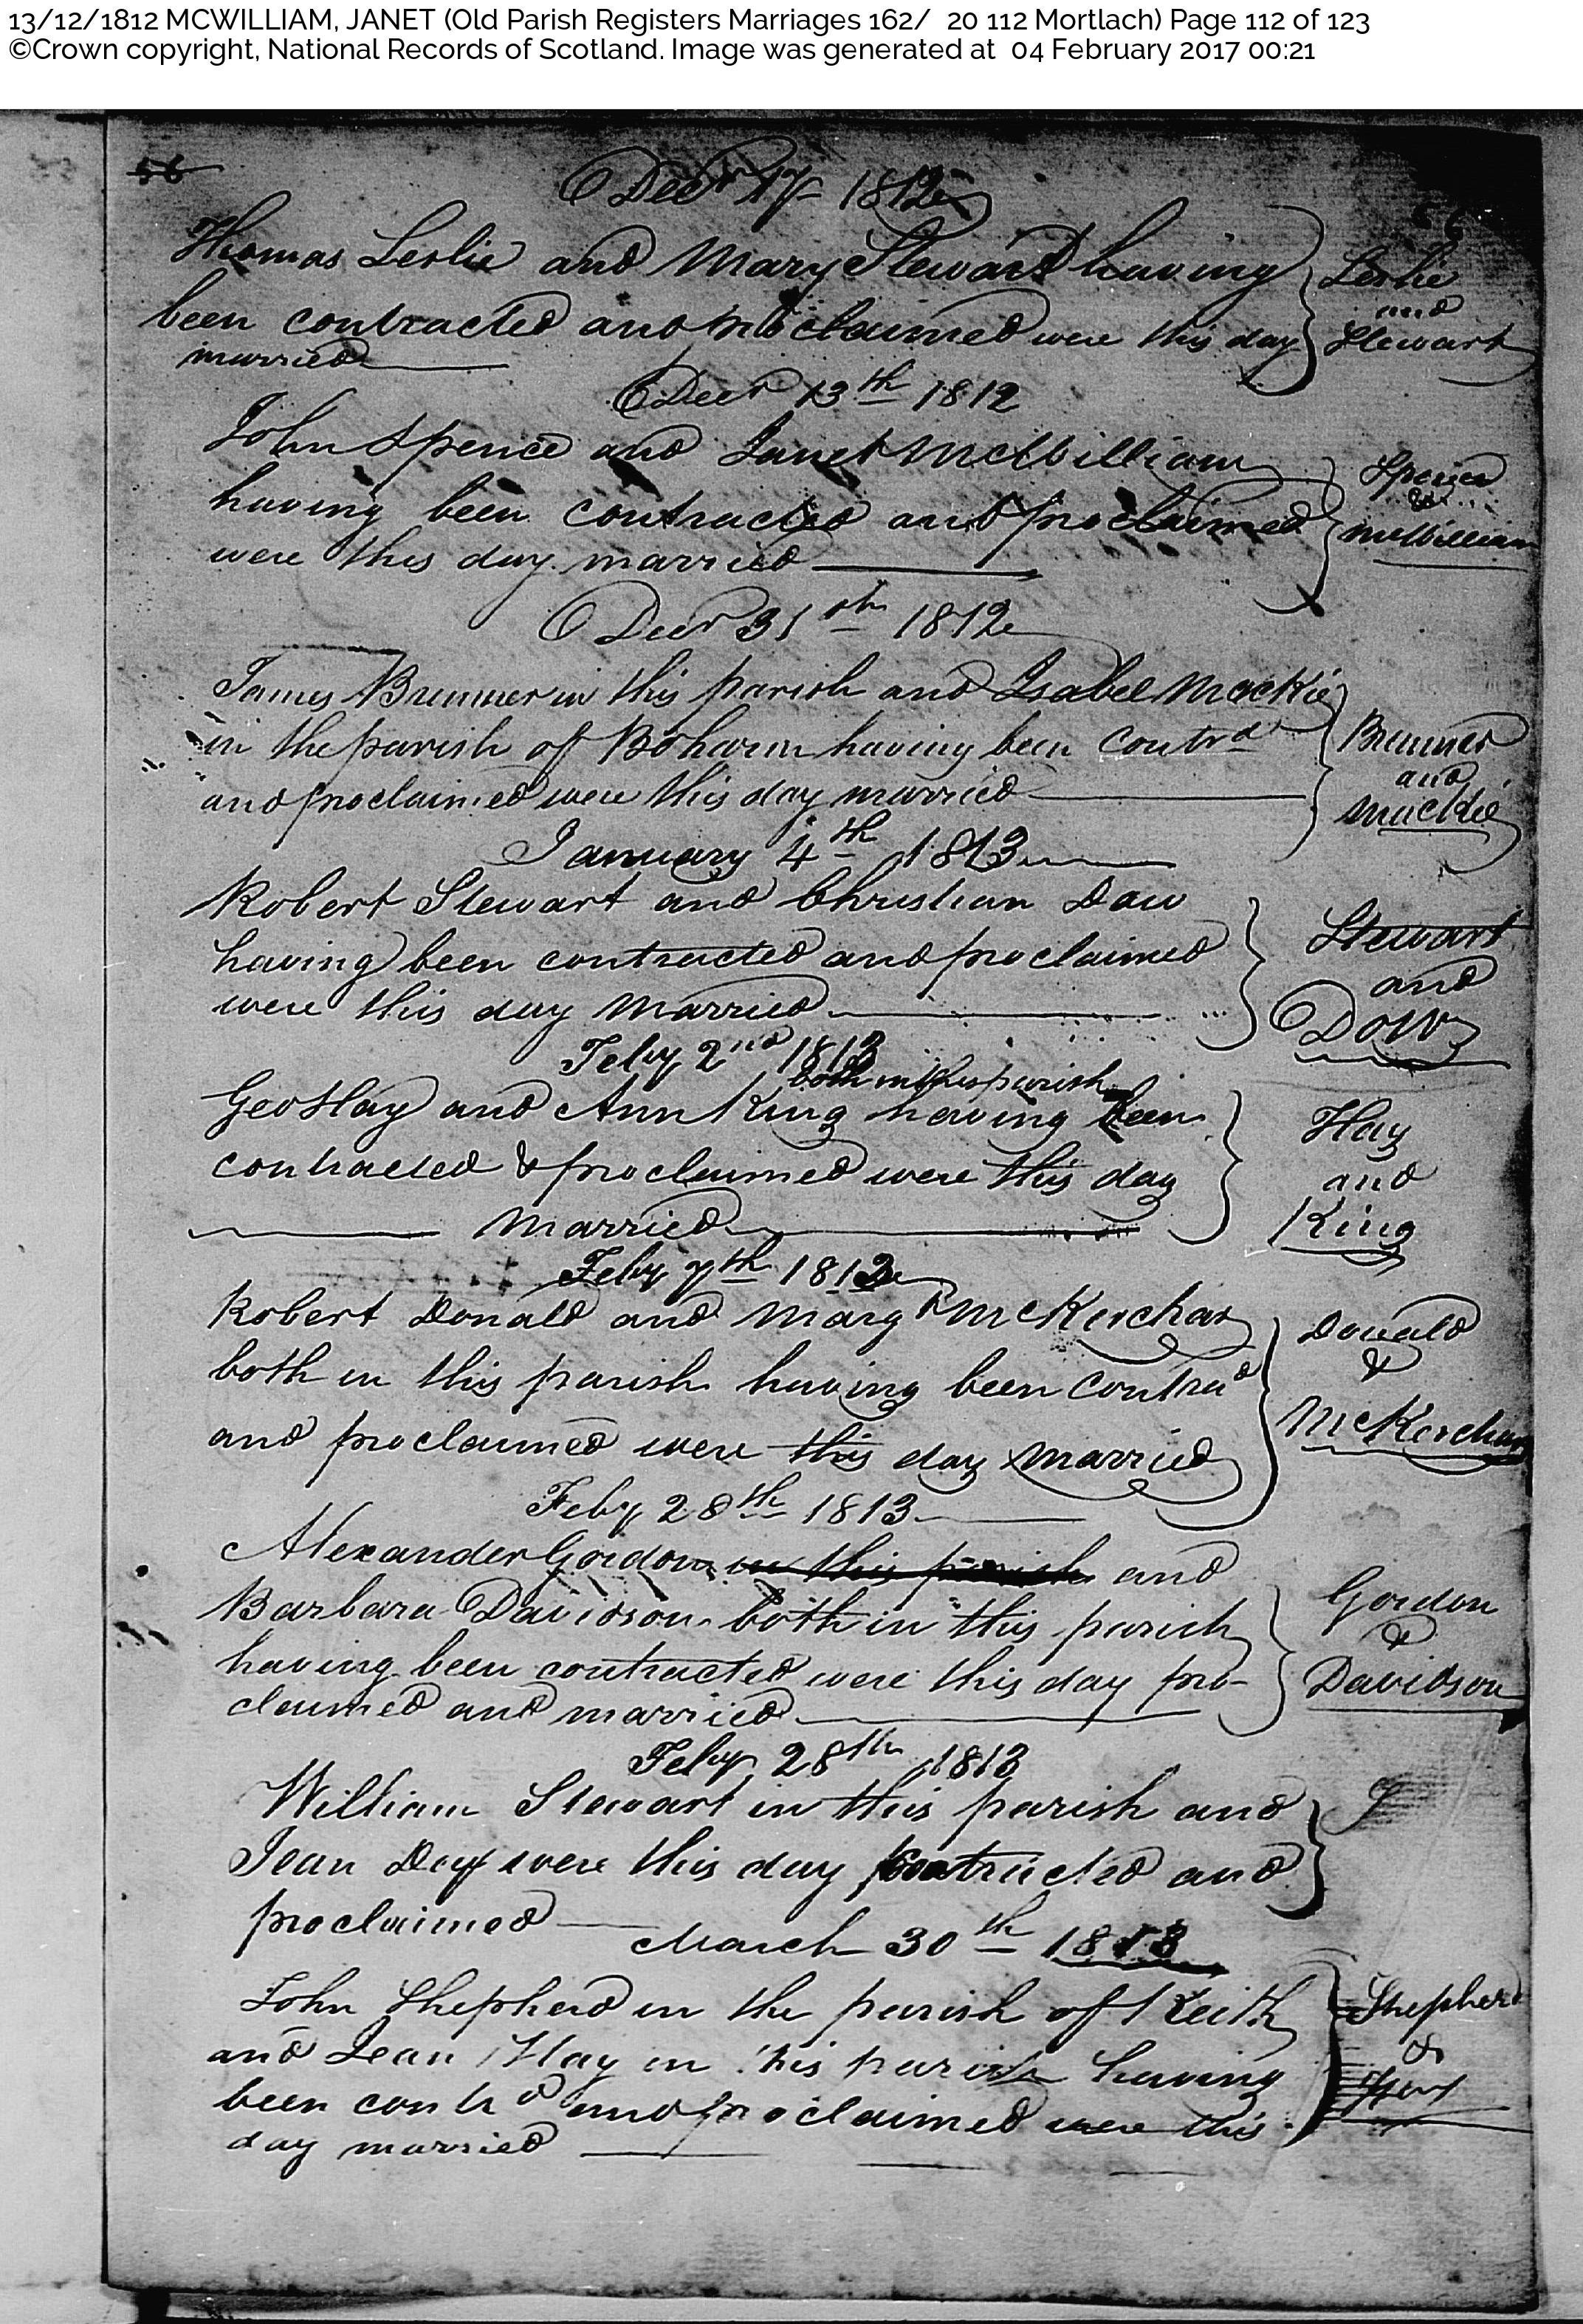 13/12/1812 MCWILLIAM, JANET (Old Parish Registers Marriages 162/ 20 112 Mortlach) Page 112 of 123
©Crown copyright, National Records of Scotland. Image was generated at 04 February 2017 00:21
56
Decr 17 1812
56
Thomas Leslie and Mary Stewart having
been contracted and proclaimed were this day
married
Leslie
and
Stewart
Decr 13th 1812
John Spence and Janet McWilliam
having been contracted and proclaimed
were this day married
Spence
&
McWilliam
Decr 31st 1812
James Brumner in this parish and Isabel MacKie
in the parish of Boharm having been contrd
and proclaimed were this day married
Brumner
and
MacKie
January 4th 1813
Robert Stewart and Christian Dow
having been contracted and proclaimed
were this day married
Stewart
and
Dow
Feby 2nd 1813
both in this parish
Geo Hay and Ann King having been
contracted & proclaimed were this day
married
Hay
and
King
Feby 7th 1813
Robert Donald and Margt McKerchar
both in this parish having been contrad
and proclaimed were this day married
Donald
&
McKerchar
Feby 28th 1813
Alexander Gordon in this parish and
Barbara Davidson both in this parish
having been contracted were this day pro-
claimed and married
Gordon
&
Davidson
Feby 28th 1813
William Stewart in this parish and
Jean were this day contracted and
proclaimed
S
March 30th 1813
John Shepherd in the parish of Keith
and Jean Hay in this parish having
been contrd and proclaimed were this
day married
Shepherd
&
Hay